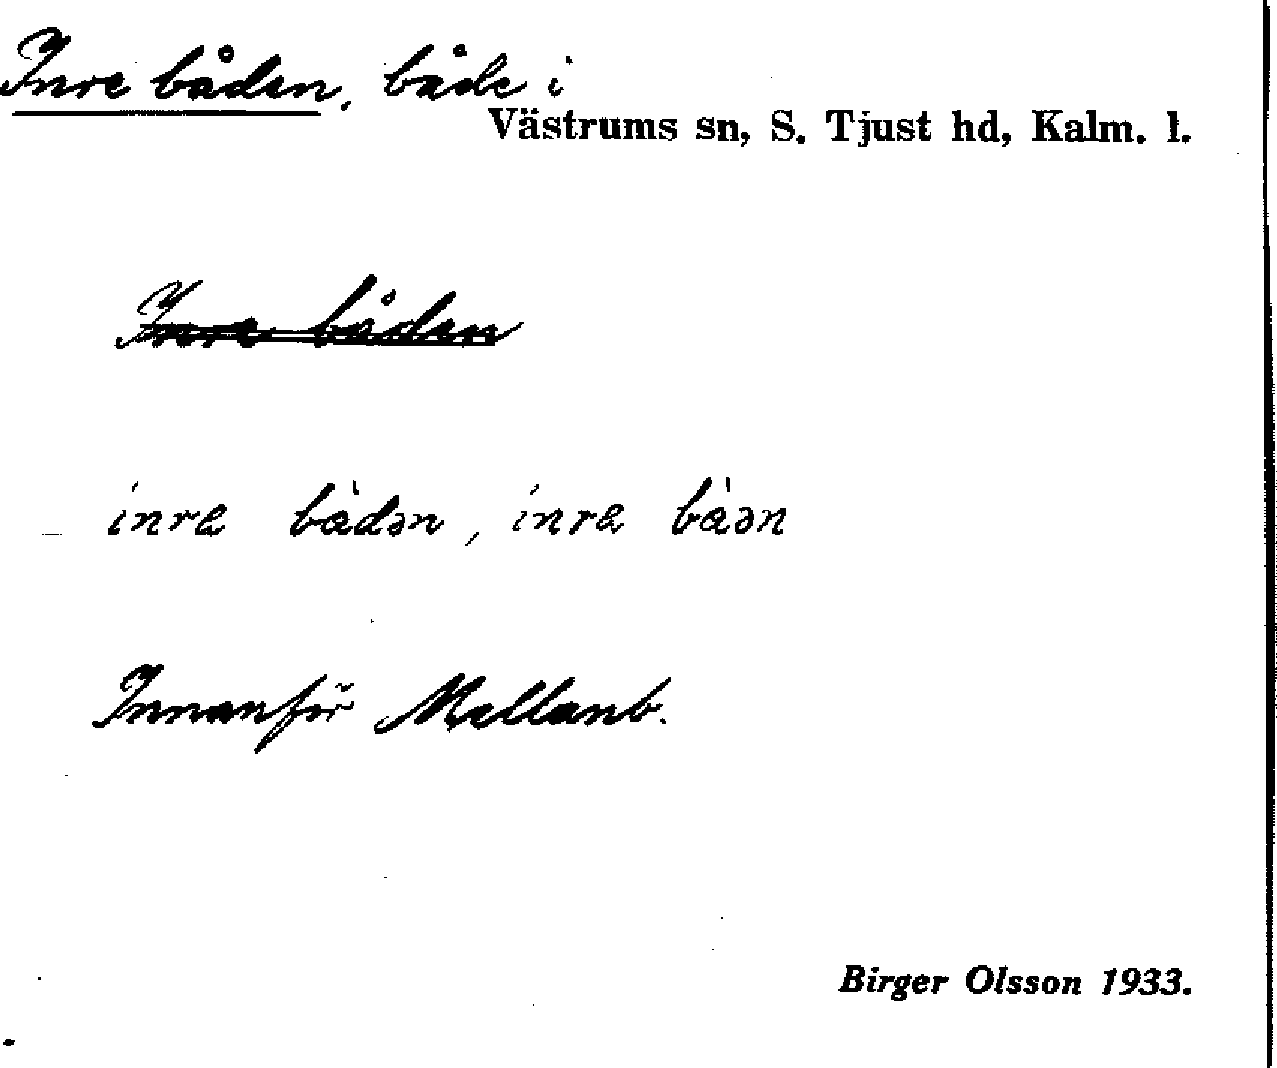 Inre båden, både i
Västrums sn, S. Tjust hd, Kalm. l.
Inre båden
inrа bàdən, inrа bàən
Innanför Mellanb.
Birger Olsson 1933.